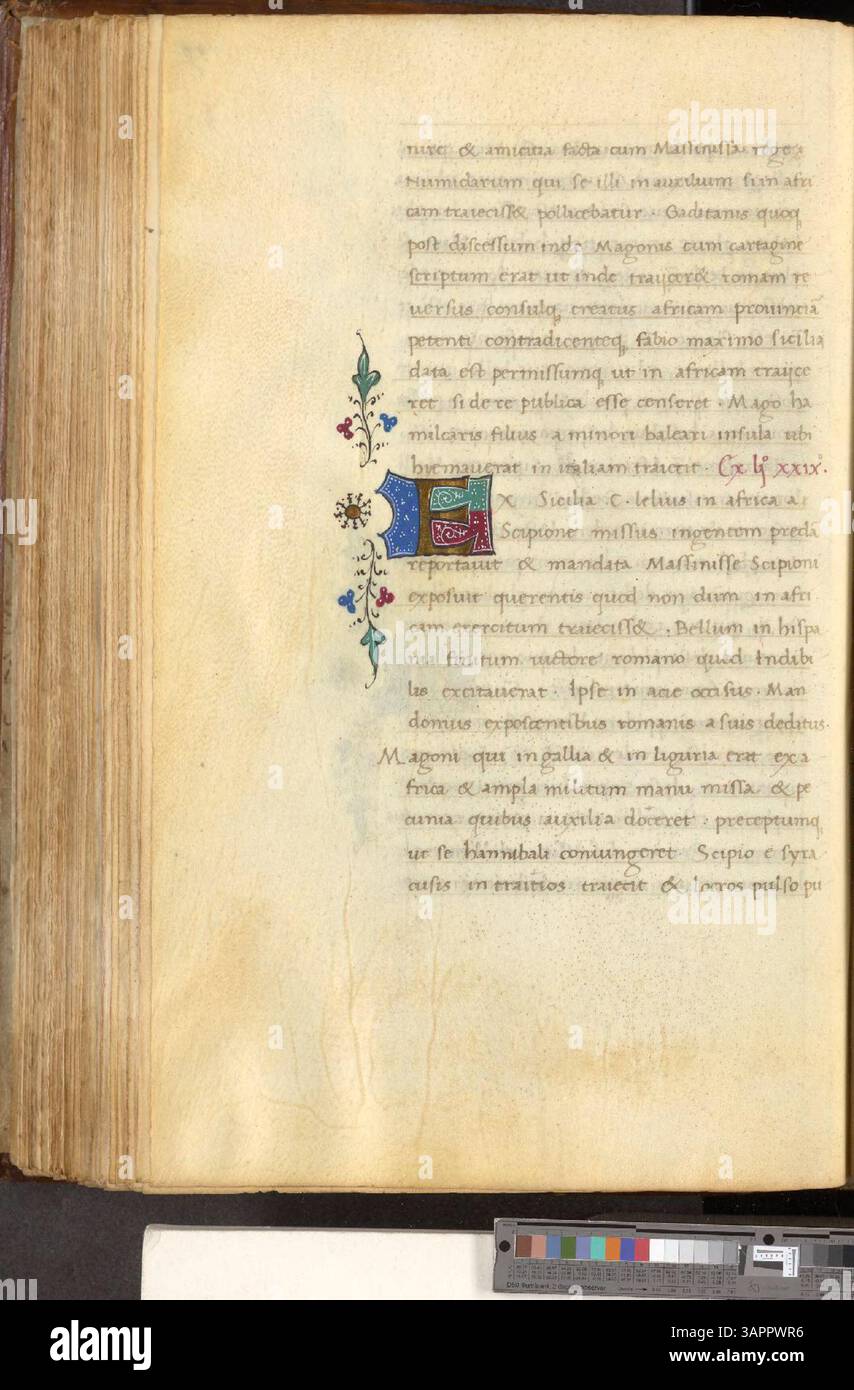 nire & amicitia facta cum Massinissa rege
Numidarum qui se illi in auxilium si in afri
cam traieciss& pollicebatur · Gaditanis quoq
post discessum inde Magonis cum cartagine
scriptum erat ut inde traijcer& romam re
versus consulq creatus africam provinciā
petenti contradicenteq fabio maximo sicilia
data est permissumq ut in africam traijce
ret si de re publica esse censeret · Mago ha
milcaris filius a minori baleari insula ubi
hiemaverat in italiam traiecit · Ex li° xxix°.
EX Sicilia C. lelius in africa a
Scipione missus ingentem predā
reportavit & mandata Massinisse Scipioni
exposuit querentis quod non dum in afri
cam exercitum traieciss& . Bellum in hispa
nia finitum victore romano quod Indibi
lis excitaverat · Ipse in acie occisus · Man
donius exposcentibus romanis a suis deditus ·
Magoni qui in gallia & in liguria erat ex a
frica & ampla militum manu missa & pe
cunia quibus auxilia doceret · preceptumq
ut se hannibali coniungeret · Scipio e syra
cusis in traitios traiecit & locros pulso pu
alamy
Image ID: 3APPWR6
www.alamy.com